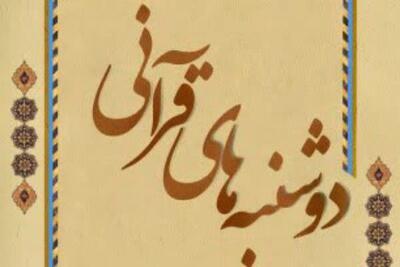 دوشنبه های قرآنی